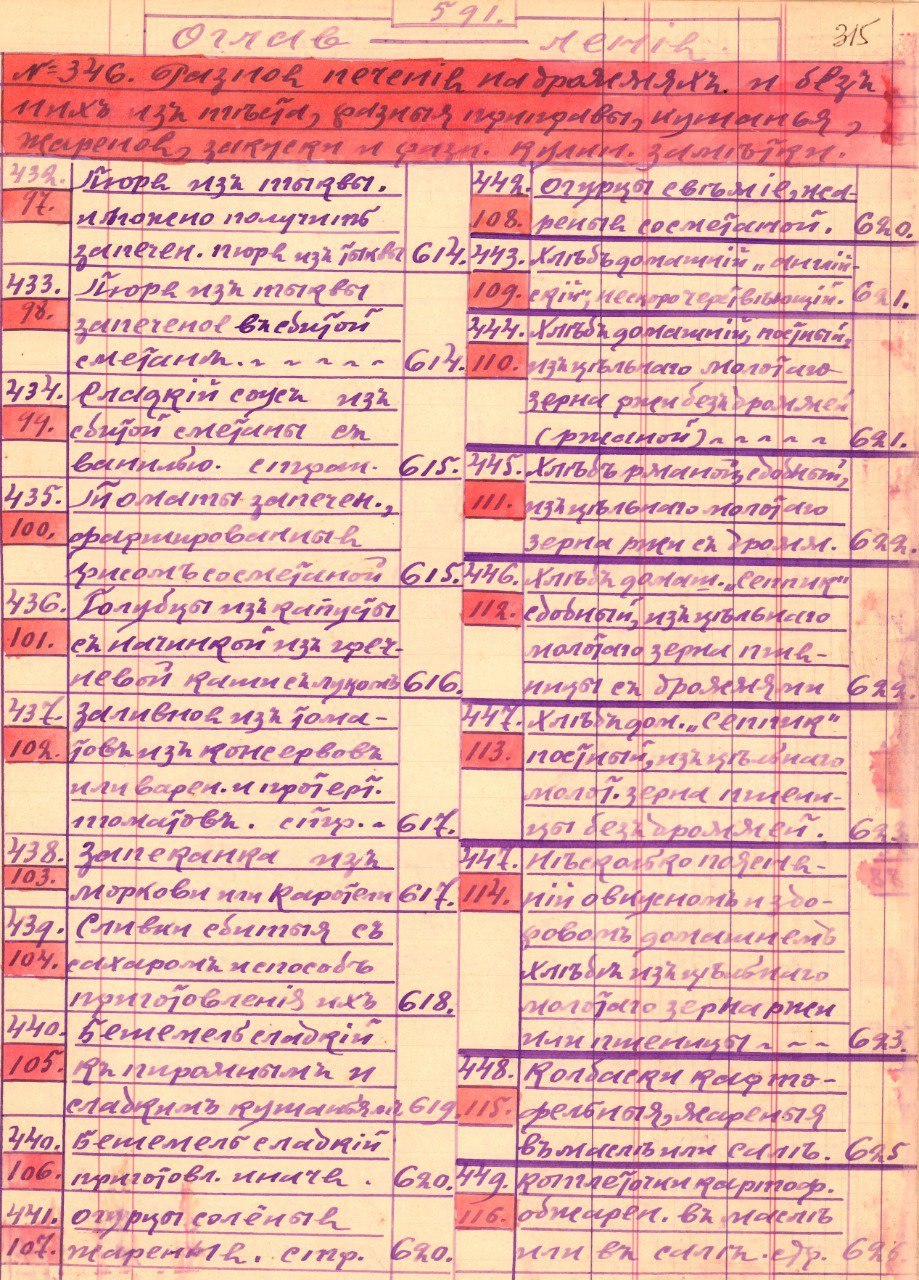 591.
315
Оглавленіе.
№ 346. Разное печеніе на дрожжяхъ и безъ
нихъ изъ тѣста, разныя приправы, кушанья,
жареное, закуски и разн. кулин. замѣтки.
432. Пюре изъ тыквы.
97. и можно получить
запечен. пюре изъ тыквы 614.
433. Пюре изъ тыквы
98. запеченое въ сбитой
сметанѣ. - - - - - 614.
434. Сладкій соусъ изъ
99. сбитой сметаны съ
ванилью. стран. 615.
435. Томаты запечен.,
100. фаршированныя
рисомъ со сметаной 615.
436. Голубцы изъ капусты
101. съ начинкой изъ греч-
невой каши съ лукомъ 616.
437. Заливное изъ тома-
102. товъ изъ консервовъ
или варен. и протерт.
томатовъ. стр. - 617.
438. Запеканка изъ
103. моркови или каротели 617.
439. Сливки сбитыя съ
104. сахаромъ и способъ
приготовленія ихъ 618.
440. Бешемель сладкій
105. къ пирожнымъ и
сладкимъ кушаньямъ 619.
440. Бешемель сладкій
106. приготовл. иначе. 620.
441. Огурцы солёные
107. жареные. стр. 620.
442. Огурцы свѣжіе, жа-
108. реные со сметаной. 620.
443. Хлѣбъ домашній „англій-
109. скій", нескоро черствѣющій. 621.
444. Хлѣбъ домашній, постный,
110. изъ цѣльнаго молотаго
зерна ржи безъ дрожжей
(ржаной) - - - - - 621.
445. Хлѣбъ ржаной, сдобный,
111. изъ цѣльнаго молотаго
зерна ржи съ дрожж. 622.
446. Хлѣбъ домаш. „Сеппик"
112. сдобный, изъ цѣльнаго
молотаго зерна пше-
ницы съ дрожжями 622
447. Хлѣбъ дом. „Сеппик"
113. постный, изъ цѣльнаго
молот. зерна пшени-
цы безъ дрожжей. 623
447. Нѣсколько поясне-
114. ній о вкусномъ и здо-
ровомъ домашнемъ
хлѣбѣ изъ цѣльнаго
молотаго зерна ржи
или пшеницы - - - 623.
448. Колбаски карто-
115. фельныя, жареныя
въ маслѣ или салѣ. 625
449. Котлеточки картоф.
116. обжарен. въ маслѣ
или въ салѣ. стр. 626